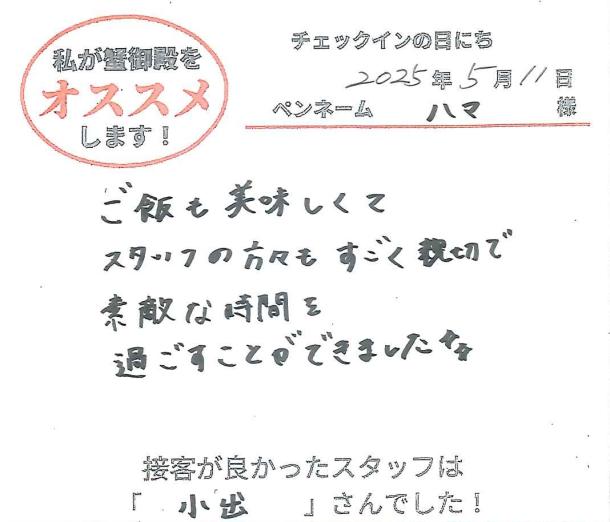 私が蟹御殿を
オススメ
します!
チェックインの日にち
2025年5月11日
ペンネーム ハマ 様
ご飯も美味しくて
スタッフの方々もすごく親切で
素敵な時間を
過ごすことができました
接客が良かったスタッフは
「 小出 」さんでした!